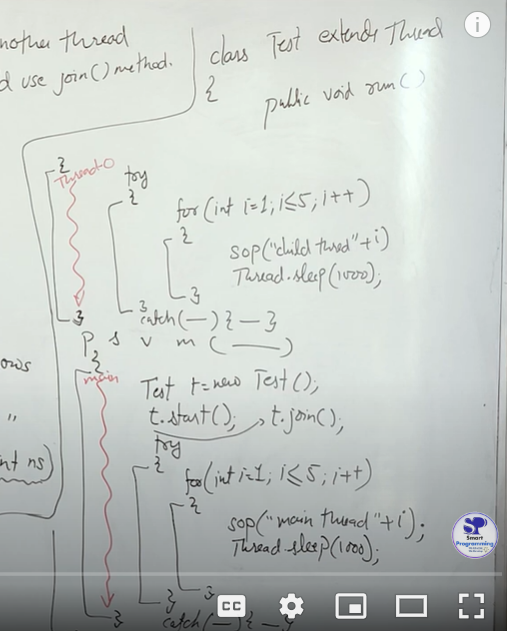 nother thread
d use join() method.
class Test extends Thread
{
public void run()
{
Thread-0
try
{
for(int i=1; i≤5; i++)
{
sop("child thred"+i)
Thread.sleep(1000);
}
}
catch(—){—}
}
P s v m (——)
{
main
Test t=new Test();
t.start(); t.join();
try
{
for(int i=1; i≤5; i++)
{
sop("main thread"+i);
Thread.sleep(1000);
}
}
catch(—){—}
}
ows
"
nt ns)
SP
Smart
Programming
CC
i